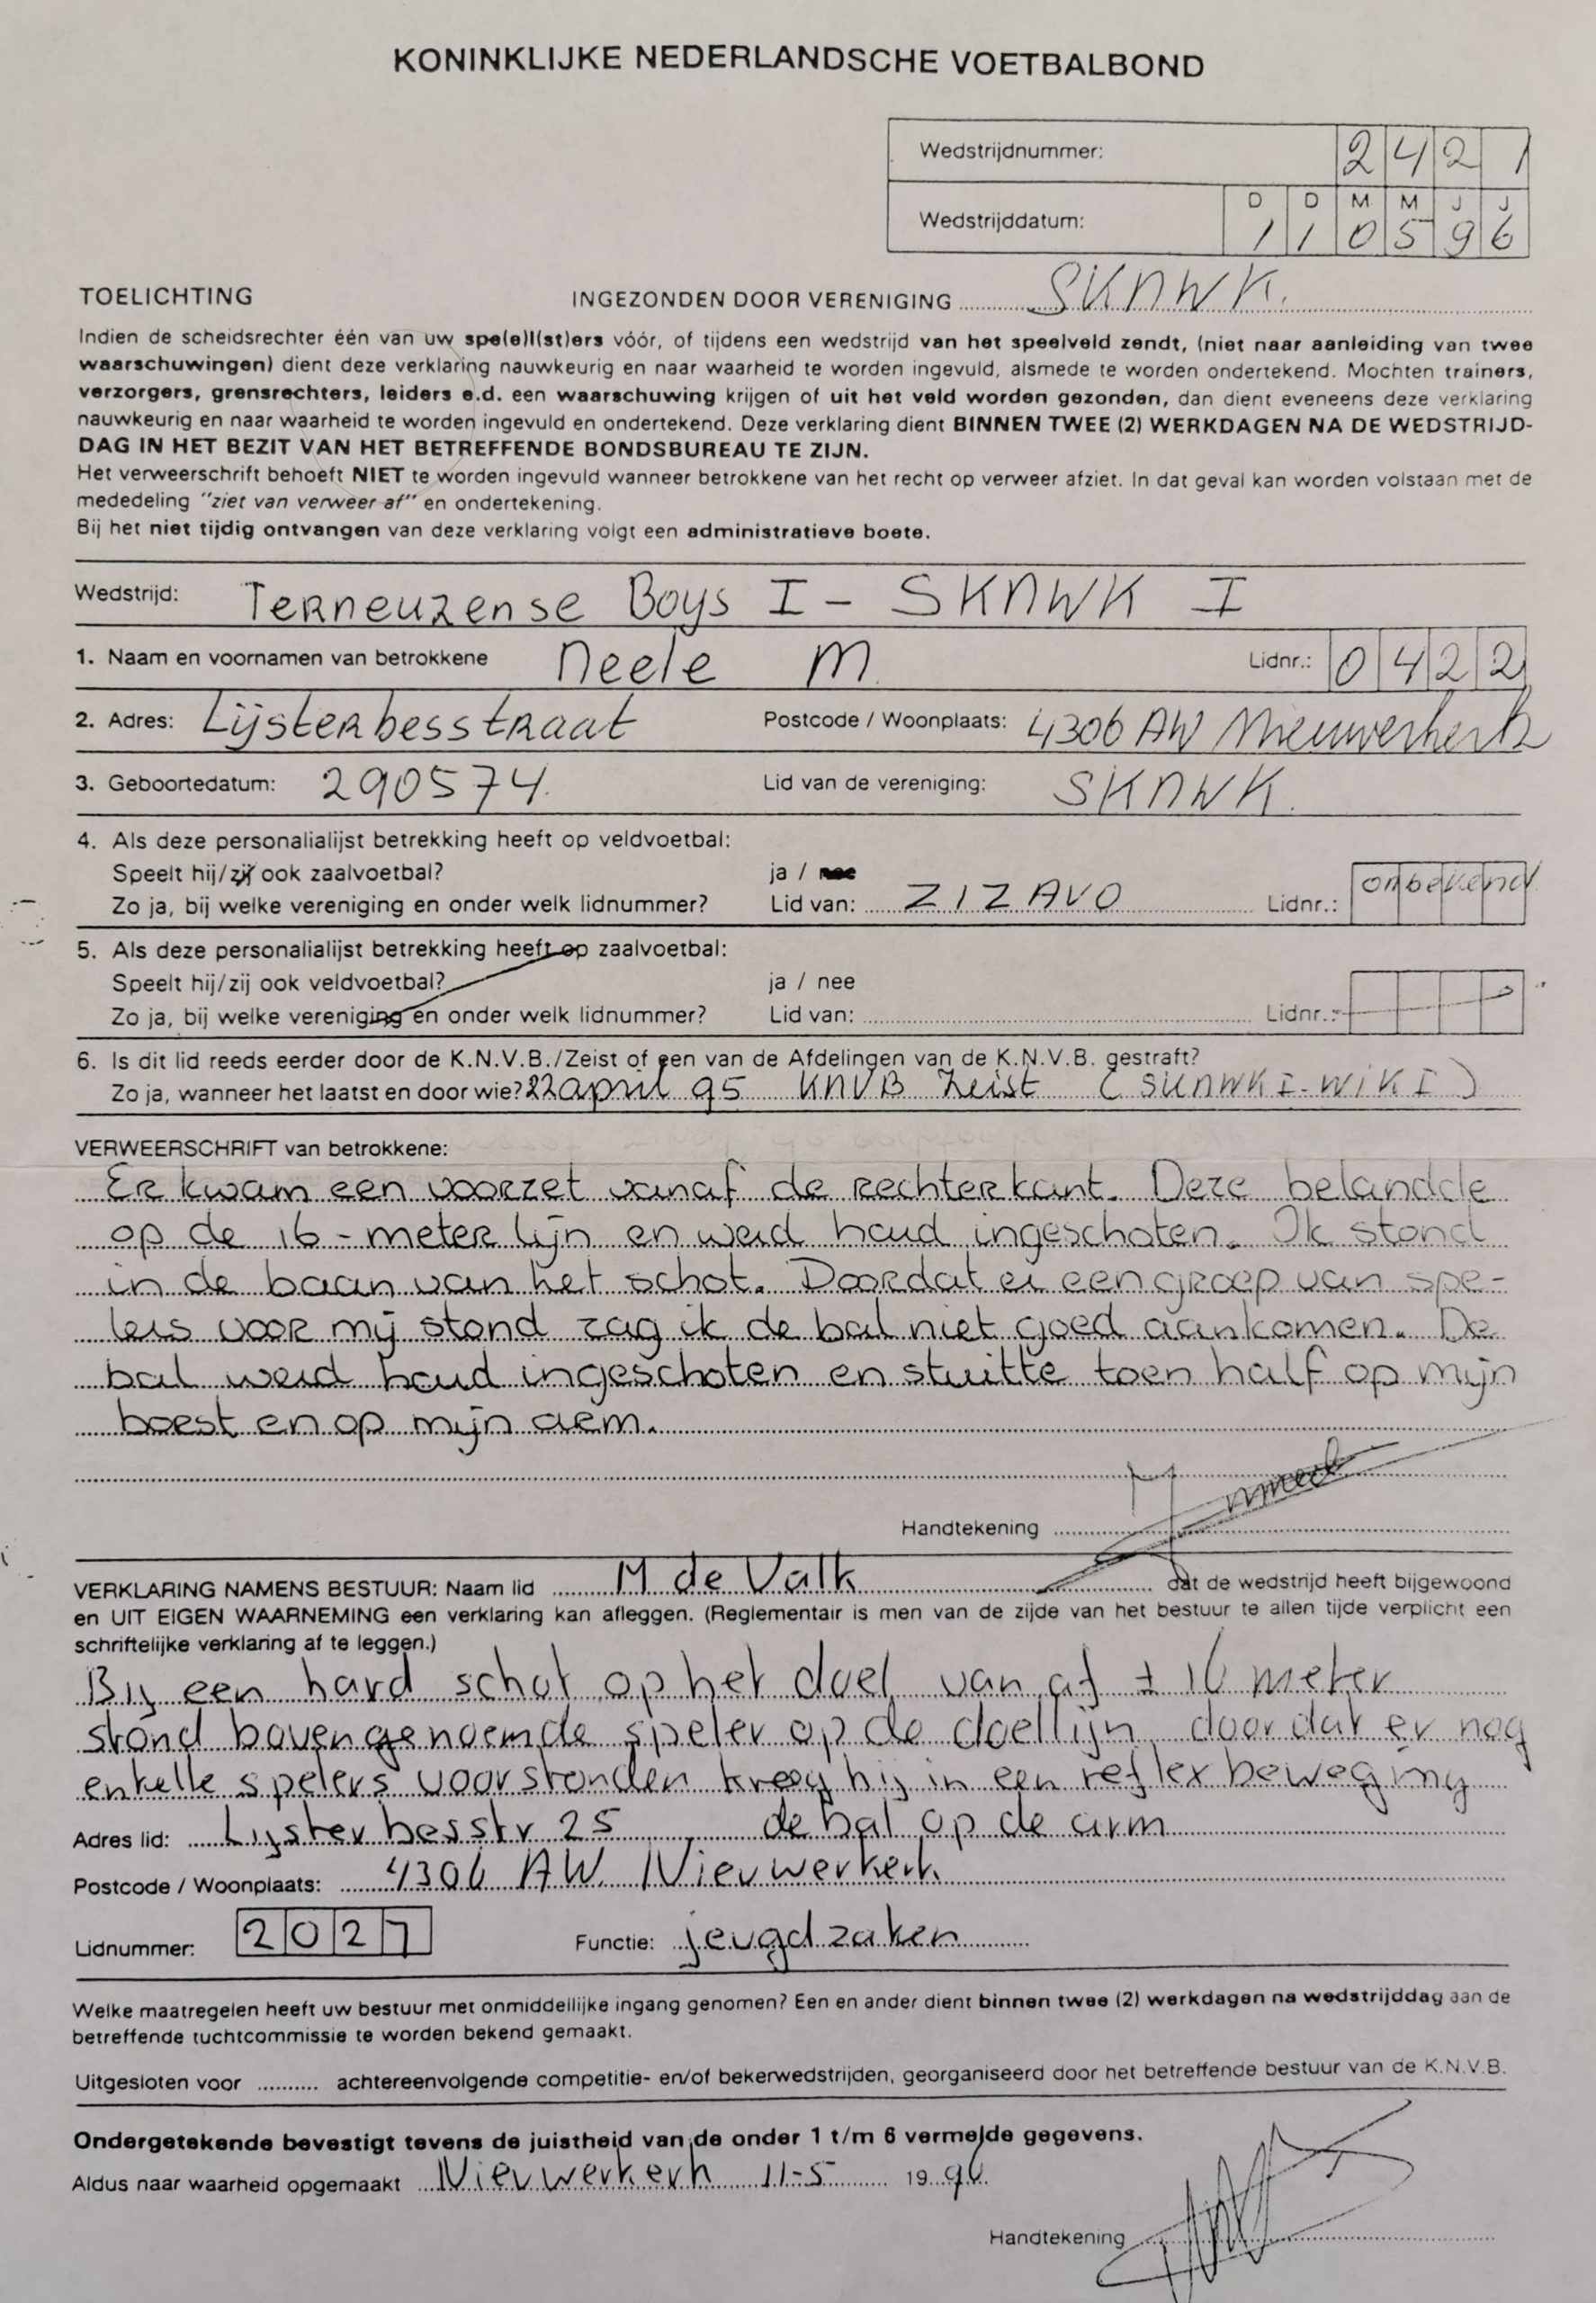 KONINKLIJKE NEDERLANDSCHE VOETBALBOND
Wedstrijdnummer: 2 4 2 1
D D M M J J
Wedstrijddatum: 1 1 0 5 9 6
TOELICHTING INGEZONDEN DOOR VERENIGING SKNWK.
Indien de scheidsrechter één van uw spe(e)l(st)ers vóór, of tijdens een wedstrijd van het speelveld zendt, (niet naar aanleiding van twee
waarschuwingen) dient deze verklaring nauwkeurig en naar waarheid te worden ingevuld, alsmede te worden ondertekend. Mochten trainers,
verzorgers, grensrechters, leiders e.d. een waarschuwing krijgen of uit het veld worden gezonden, dan dient eveneens deze verklaring
nauwkeurig en naar waarheid te worden ingevuld en ondertekend. Deze verklaring dient BINNEN TWEE (2) WERKDAGEN NA DE WEDSTRIJD-
DAG IN HET BEZIT VAN HET BETREFFENDE BONDSBUREAU TE ZIJN.
Het verweerschrift behoeft NIET te worden ingevuld wanneer betrokkene van het recht op verweer afziet. In dat geval kan worden volstaan met de
mededeling "ziet van verweer af" en ondertekening.
Bij het niet tijdig ontvangen van deze verklaring volgt een administratieve boete.
Wedstrijd: Terneuzense Boys I - SKNWK I
1. Naam en voornamen van betrokkene Neele M. Lidnr.: 0 4 2 2
2. Adres: Lijsterbesstraat Postcode / Woonplaats: 4306 AW Nieuwerkerk
3. Geboortedatum: 290574. Lid van de vereniging: SKNWK.
4. Als deze personalialijst betrekking heeft op veldvoetbal:
Speelt hij/zij ook zaalvoetbal? ja / nee
Zo ja, bij welke vereniging en onder welk lidnummer? Lid van: ZIZAVO Lidnr.: onbekend
5. Als deze personalialijst betrekking heeft op zaalvoetbal:
Speelt hij/zij ook veldvoetbal? ja / nee
Zo ja, bij welke vereniging en onder welk lidnummer? Lid van: Lidnr.:
6. Is dit lid reeds eerder door de K.N.V.B./Zeist of een van de Afdelingen van de K.N.V.B. gestraft?
Zo ja, wanneer het laatst en door wie? 22 april 95 KNVB Zeist (SKNWK I - WIK I)
VERWEERSCHRIFT van betrokkene:
Er kwam een voorzet vanaf de rechterkant. Deze belandde
op de 16-meter lijn en werd hard ingeschoten. Ik stond
in de baan van het schot. Doordat er een groep van spe-
lers voor mij stond zag ik de bal niet goed aankomen. De
bal werd hard ingeschoten en stuitte toen half op mijn
borst en op mijn arm.
Handtekening
VERKLARING NAMENS BESTUUR: Naam lid M de Valk dat de wedstrijd heeft bijgewoond
en UIT EIGEN WAARNEMING een verklaring kan afleggen. (Reglementair is men van de zijde van het bestuur te allen tijde verplicht een
schriftelijke verklaring af te leggen.)
Bij een hard schot op het doel van af ± 16 meter
stond bovengenoemde speler op de doellijn doordat er nog
enkelle spelers voorstonden kreeg hij in een reflex beweging
Adres lid: Lijsterbesstr 25 de bal op de arm
Postcode / Woonplaats: 4306 AW Nieuwerkerk
Lidnummer: 2 0 2 7 Functie: jeugdzaken
Welke maatregelen heeft uw bestuur met onmiddellijke ingang genomen? Een en ander dient binnen twee (2) werkdagen na wedstrijddag aan de
betreffende tuchtcommissie te worden bekend gemaakt.
Uitgesloten voor .......... achtereenvolgende competitie- en/of bekerwedstrijden, georganiseerd door het betreffende bestuur van de K.N.V.B.
Ondergetekende bevestigt tevens de juistheid van de onder 1 t/m 6 vermelde gegevens.
Aldus naar waarheid opgemaakt Nieuwerkerk 11-5 19 96.
Handtekening